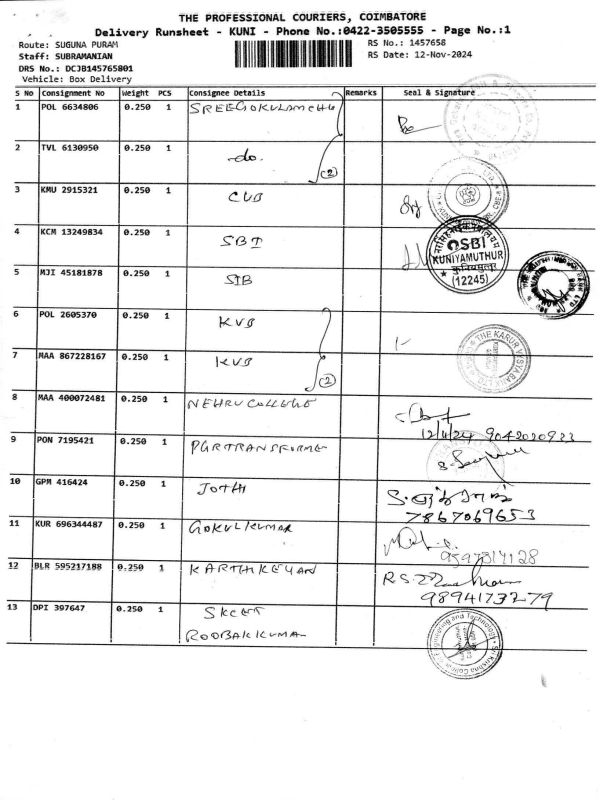 THE PROFESSIONAL COURIERS, COIMBATORE
Delivery Runsheet - KUNI - Phone No.:0422-3505555 - Page No.:1
Route: SUGUNA PURAM
RS No.: 1457658
Staff: SUBRAMANIAN
RS Date: 12-Nov-2024
DRS No.: DCJB145765801
Vehicle: Box Delivery
S No Consignment No Weight PCS Consignee Details Remarks Seal & Signature
1 POL 6634806 0.250 1 SREEGOKULAMCHU
2 TVL 6130950 0.250 1 do.
(2)
3 KMU 2915321 0.250 1 CUB
4 KCM 13249834 0.250 1 SBI
OSBI
KUNIYAMUTHUR
(12245)
5 MJI 45181878 0.250 1 SIB
6 POL 2605370 0.250 1 KVB
THE KARUR VYSYA BANK LTD
7 MAA 867228167 0.250 1 KVB
(2)
8 MAA 400072481 0.250 1 NEHRU COLLEGE
12/11/24 9042020933
9 PON 7195421 0.250 1 PGRTRANSFORME
10 GPM 416424 0.250 1 JOTHI
7867069653
11 KUR 696344487 0.250 1 GOKULKUMAR
9597817128
12 BLR 595217188 0.250 1 KARTHIKEYAN
9894173279
13 DPI 397647 0.250 1 SKCET
ROOBAKKUMA
Sri Krishna College of Engineering and Technology